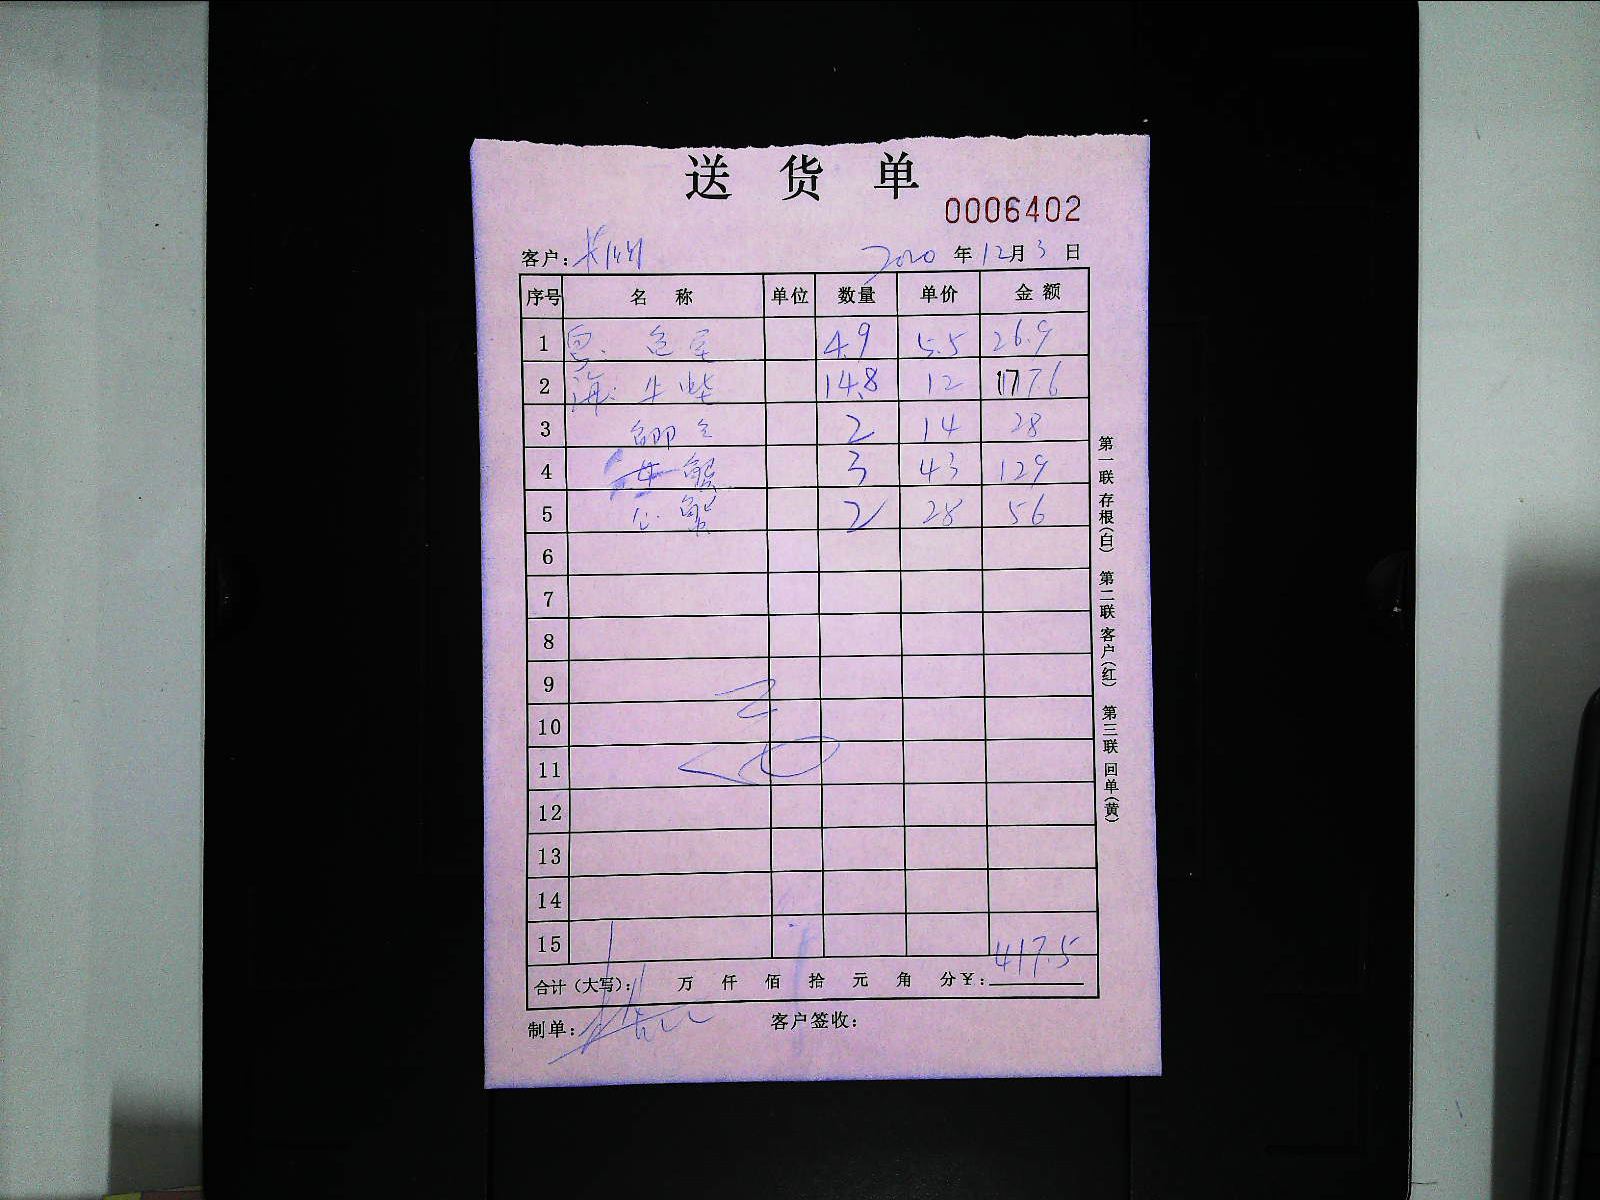 送 货 单
0006402
客户: 2020 年 12 月 3 日
序号 名 称 单位 数量 单价 金 额
1 4.9 5.5 26.9
2 海 14.8 12 177.6
3 2 14 28
4 蟹 3 43 129
5 公蟹 2 28 56
6
7
8
9
10
11
12
13
14
15
合计(大写): 万 仟 佰 拾 元 角 分 ¥: 417.5
制单: 客户签收:
第一联 存根(白) 第二联 客户(红) 第三联 回单(黄)